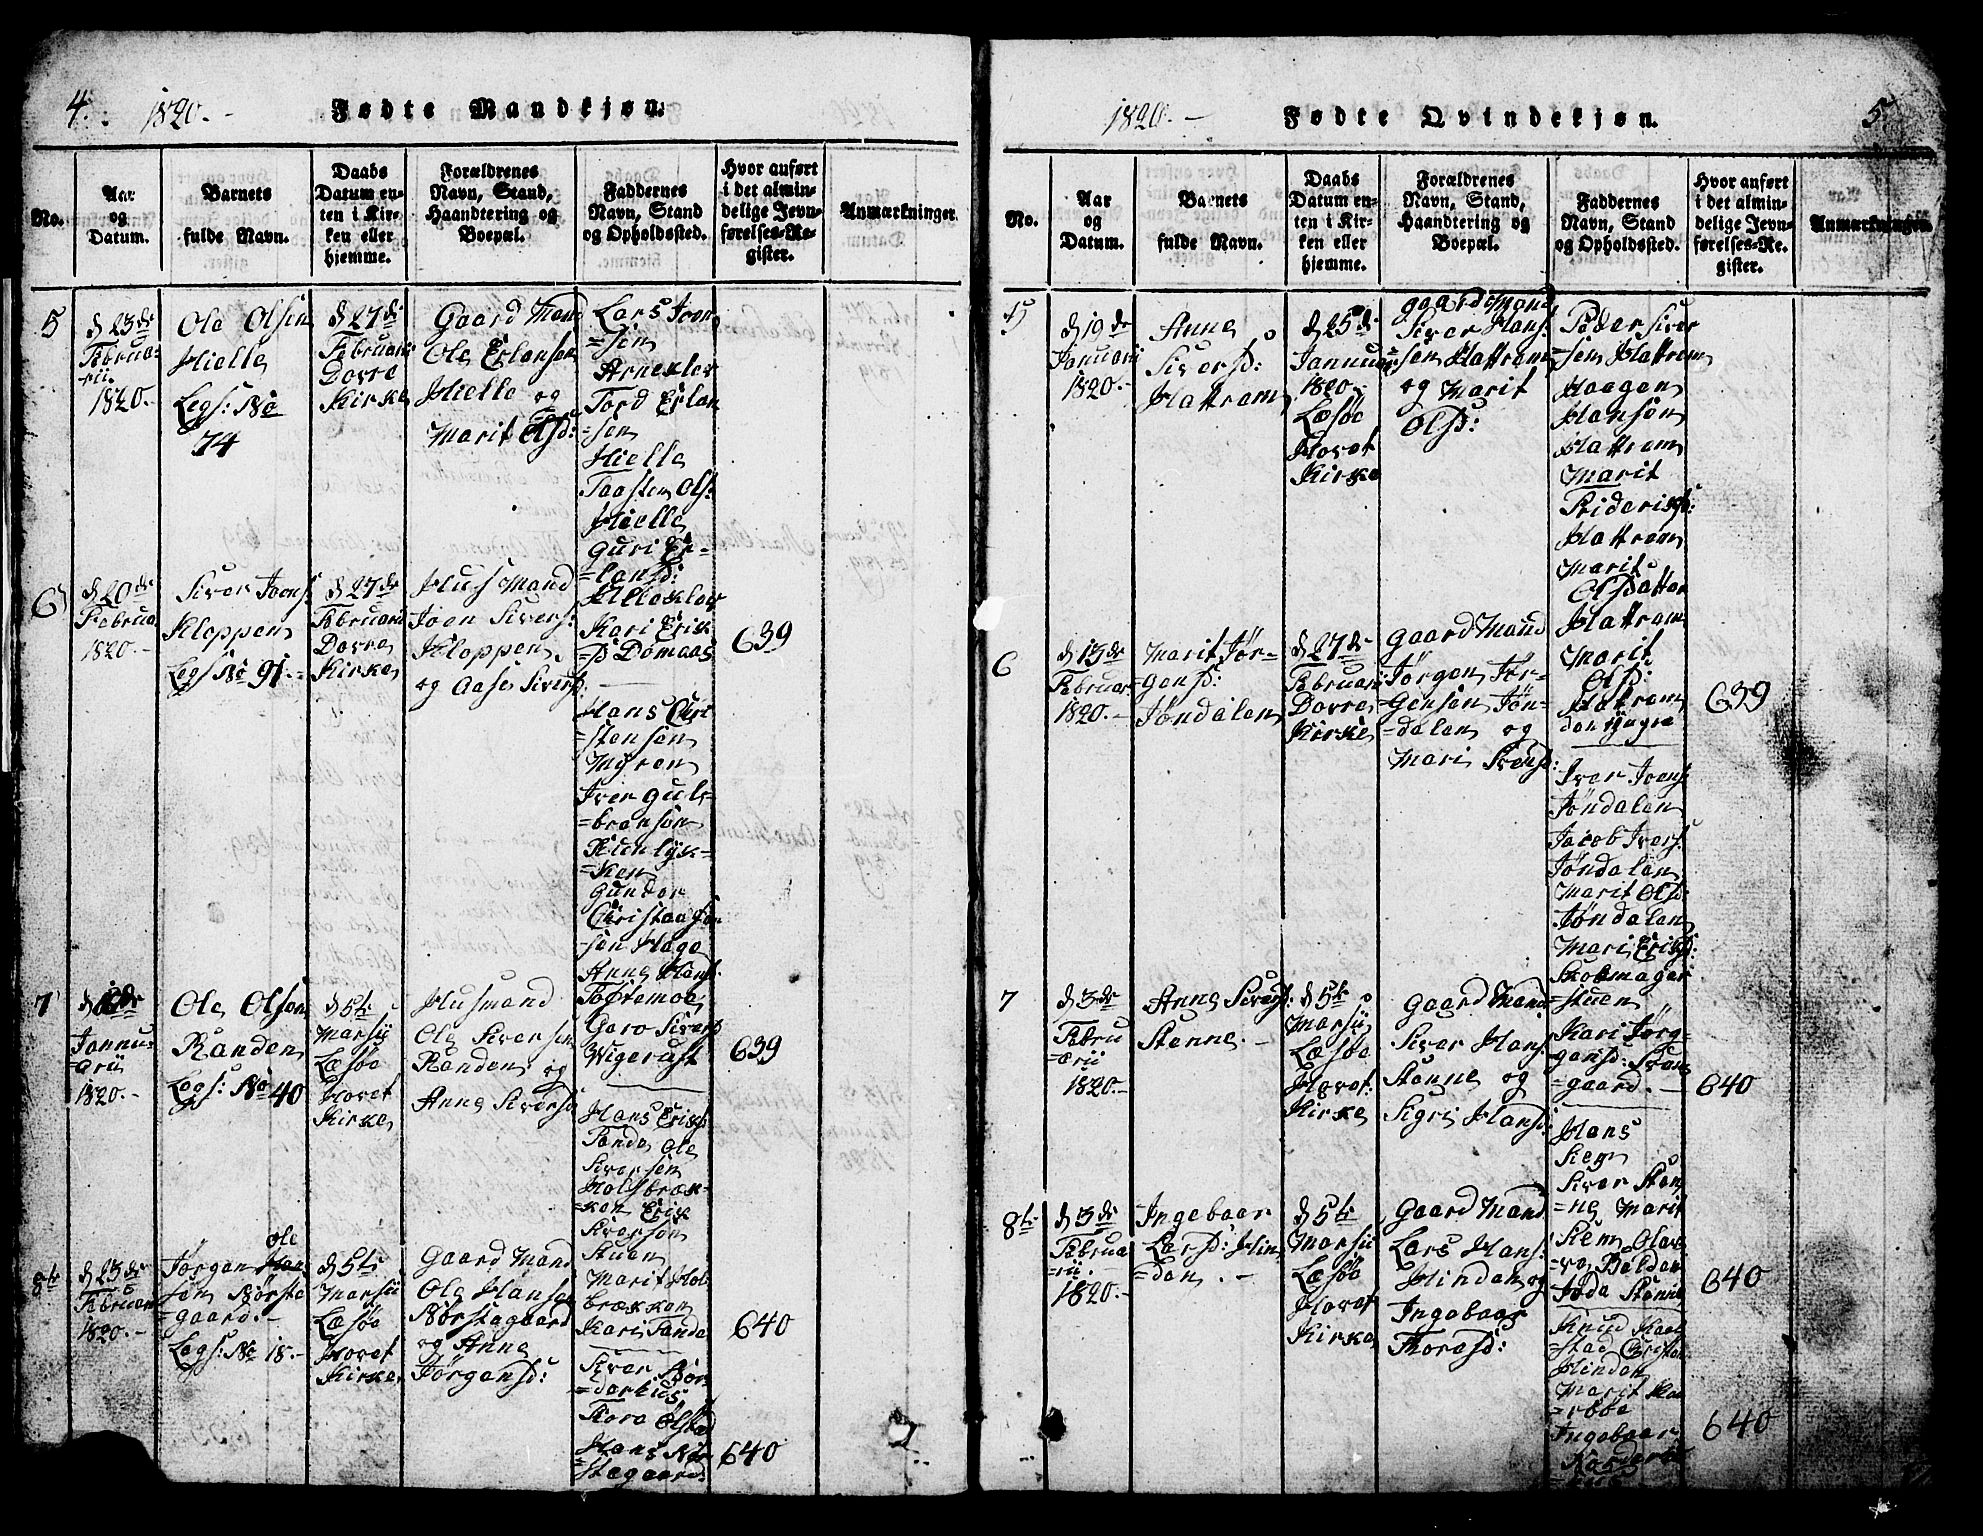 4. 1820.- Fødte Mandkjøn.
No.
Aar
og
Datum.
Barnets
fulde Navn.
Daabs
Datum en-
ten i Kir-
ken eller
hjemme.
Forældrenes
Navn, Stand,
Haandtering og
Boepæl.
Faddernes
Navn, Stand
og Opholdssted.
Hvor anført
i det almin-
delige Jevn-
førelses-Re-
gister.
Anmærkninger.
5
d 23de
Februa-
rii.
1820.-
Ole Olsen
Hielle
Legs: No
74
d 27de
Februarii
Dovre
Kirke
Gaard Mand
Ole Erlansen
Hielle og
Marit Olsd:
Lars Iven
=sen
Arneklev
Tord Erlan
=sen
Hielle
Taasten Ols:
Hielle
Guri Er-
lansd:
Killeklev
Kari Erik
=sd Domaas
639
6
d 20de
Februa.
1820.-
Siver Joens
Kloppen
Legs No 91.-
d 27de
Februarii
Dovre
Kirke
Huus Mand
Joen Sivers:
Kloppen
og Aase Siversd.
Hans Chri
=stensen
Myren
Iver Gulv-
=bransen
=ken
Gunder
Anne Hans.
Toftemoe
Garo Siversd
Wigerust
639
7
Jannu-
arii
1820.-
Ole Olsen
Randen
Legs: No 40
d 5te
Marsii
Læsøe
Hovet
Kirke
Husmand
Ole Siversen
Randen og
Anne Siversd
Hans Eriks
Tande Ole
Siversen
Holsbræk-
=ken Erik
Siversen
Stuen
Marit Hol
brækken
Kari Tande
640
8te
d 23de
Februari
1820.-
Ole
Jørgen Han
sen Nørste
=gaard.-
Legs: No 18.-
d 5te
Marsii
Læsøe
Hovet
Kirke
Gaard Mand
Ole Hansen
Nørstegaard
og Anne
Jørgensd:
Siver
Tora Olstad
Hans Nør
=stegaard.
640
1820.- Fødte Qvindekjøn. 5
No.
Aar
og
Datum.
Barnets
fulde Navn.
Daabs
Datum en-
ten i Kir-
ken eller
hjemme.
Forældrenes
Navn, Stand,
Haandtering og
Boepæl.
Faddernes
Navn, Stand
og Opholdssted.
Hvor anført
i det almin-
delige Jevn-
førelses-Re-
gister.
Anmærkninger.
5
d 19de
Januarii
1820.-
Anne
Siversd:
Hattrem
d 25de
Jannuarii
1820.-
Læsøe
Hovet
Kirke
Gaard Mand
Siver Hans:
sen Hattrem
og Marit
Olsd:
Peder Siver
=sen Hattrem
Haagen
Hansen
Hattrem
Marit
Friderichsd:
Hattrem
Marit
Olsdatter
Hattrem
Marit
Olsd:
Hattrem
den Yngre
639
6
d 13de
Februari
1820.-
Marit Jør-
gensd:
Jøndalen
d 27de
Februarii
Dovre
Kirke
Gaard Mand
Jørgen Jør-
=gensen Jøn-
=dalen og
Mari Svensd:
Iver Joens
Jøndalen
Jacob Ivers:
Jøndalen
Marit Olsd:
Jøndalen
Mari Eriksd:
Skoemager
=stuen
Kari Jørg-
=gensd:
=gaard.-
640
7
d 3de
Febru
=arii
1820.-
Anne Siversd:
Stenne.-
d 5te
Marsii
Læsøe
Hovet:
Kirke
Gaard Mand
Siver Hans
Stenne og
Sigri Hansd:
Hans
Kiem
Siver Sten
=ne Marit
Kiem
640
8te
d 3de
Februa
=rii.
1820.-
Ingebaar
Larsd: Hin
=den.-
d 5te
Marsii
Læsøe
Hovet
Kirke
Gaard Mand
Lars Hans:
Hinden og
Ingebaar
Thoresd:
Knud
=stad Christen
Hinden
Marit
Ingebaar
640